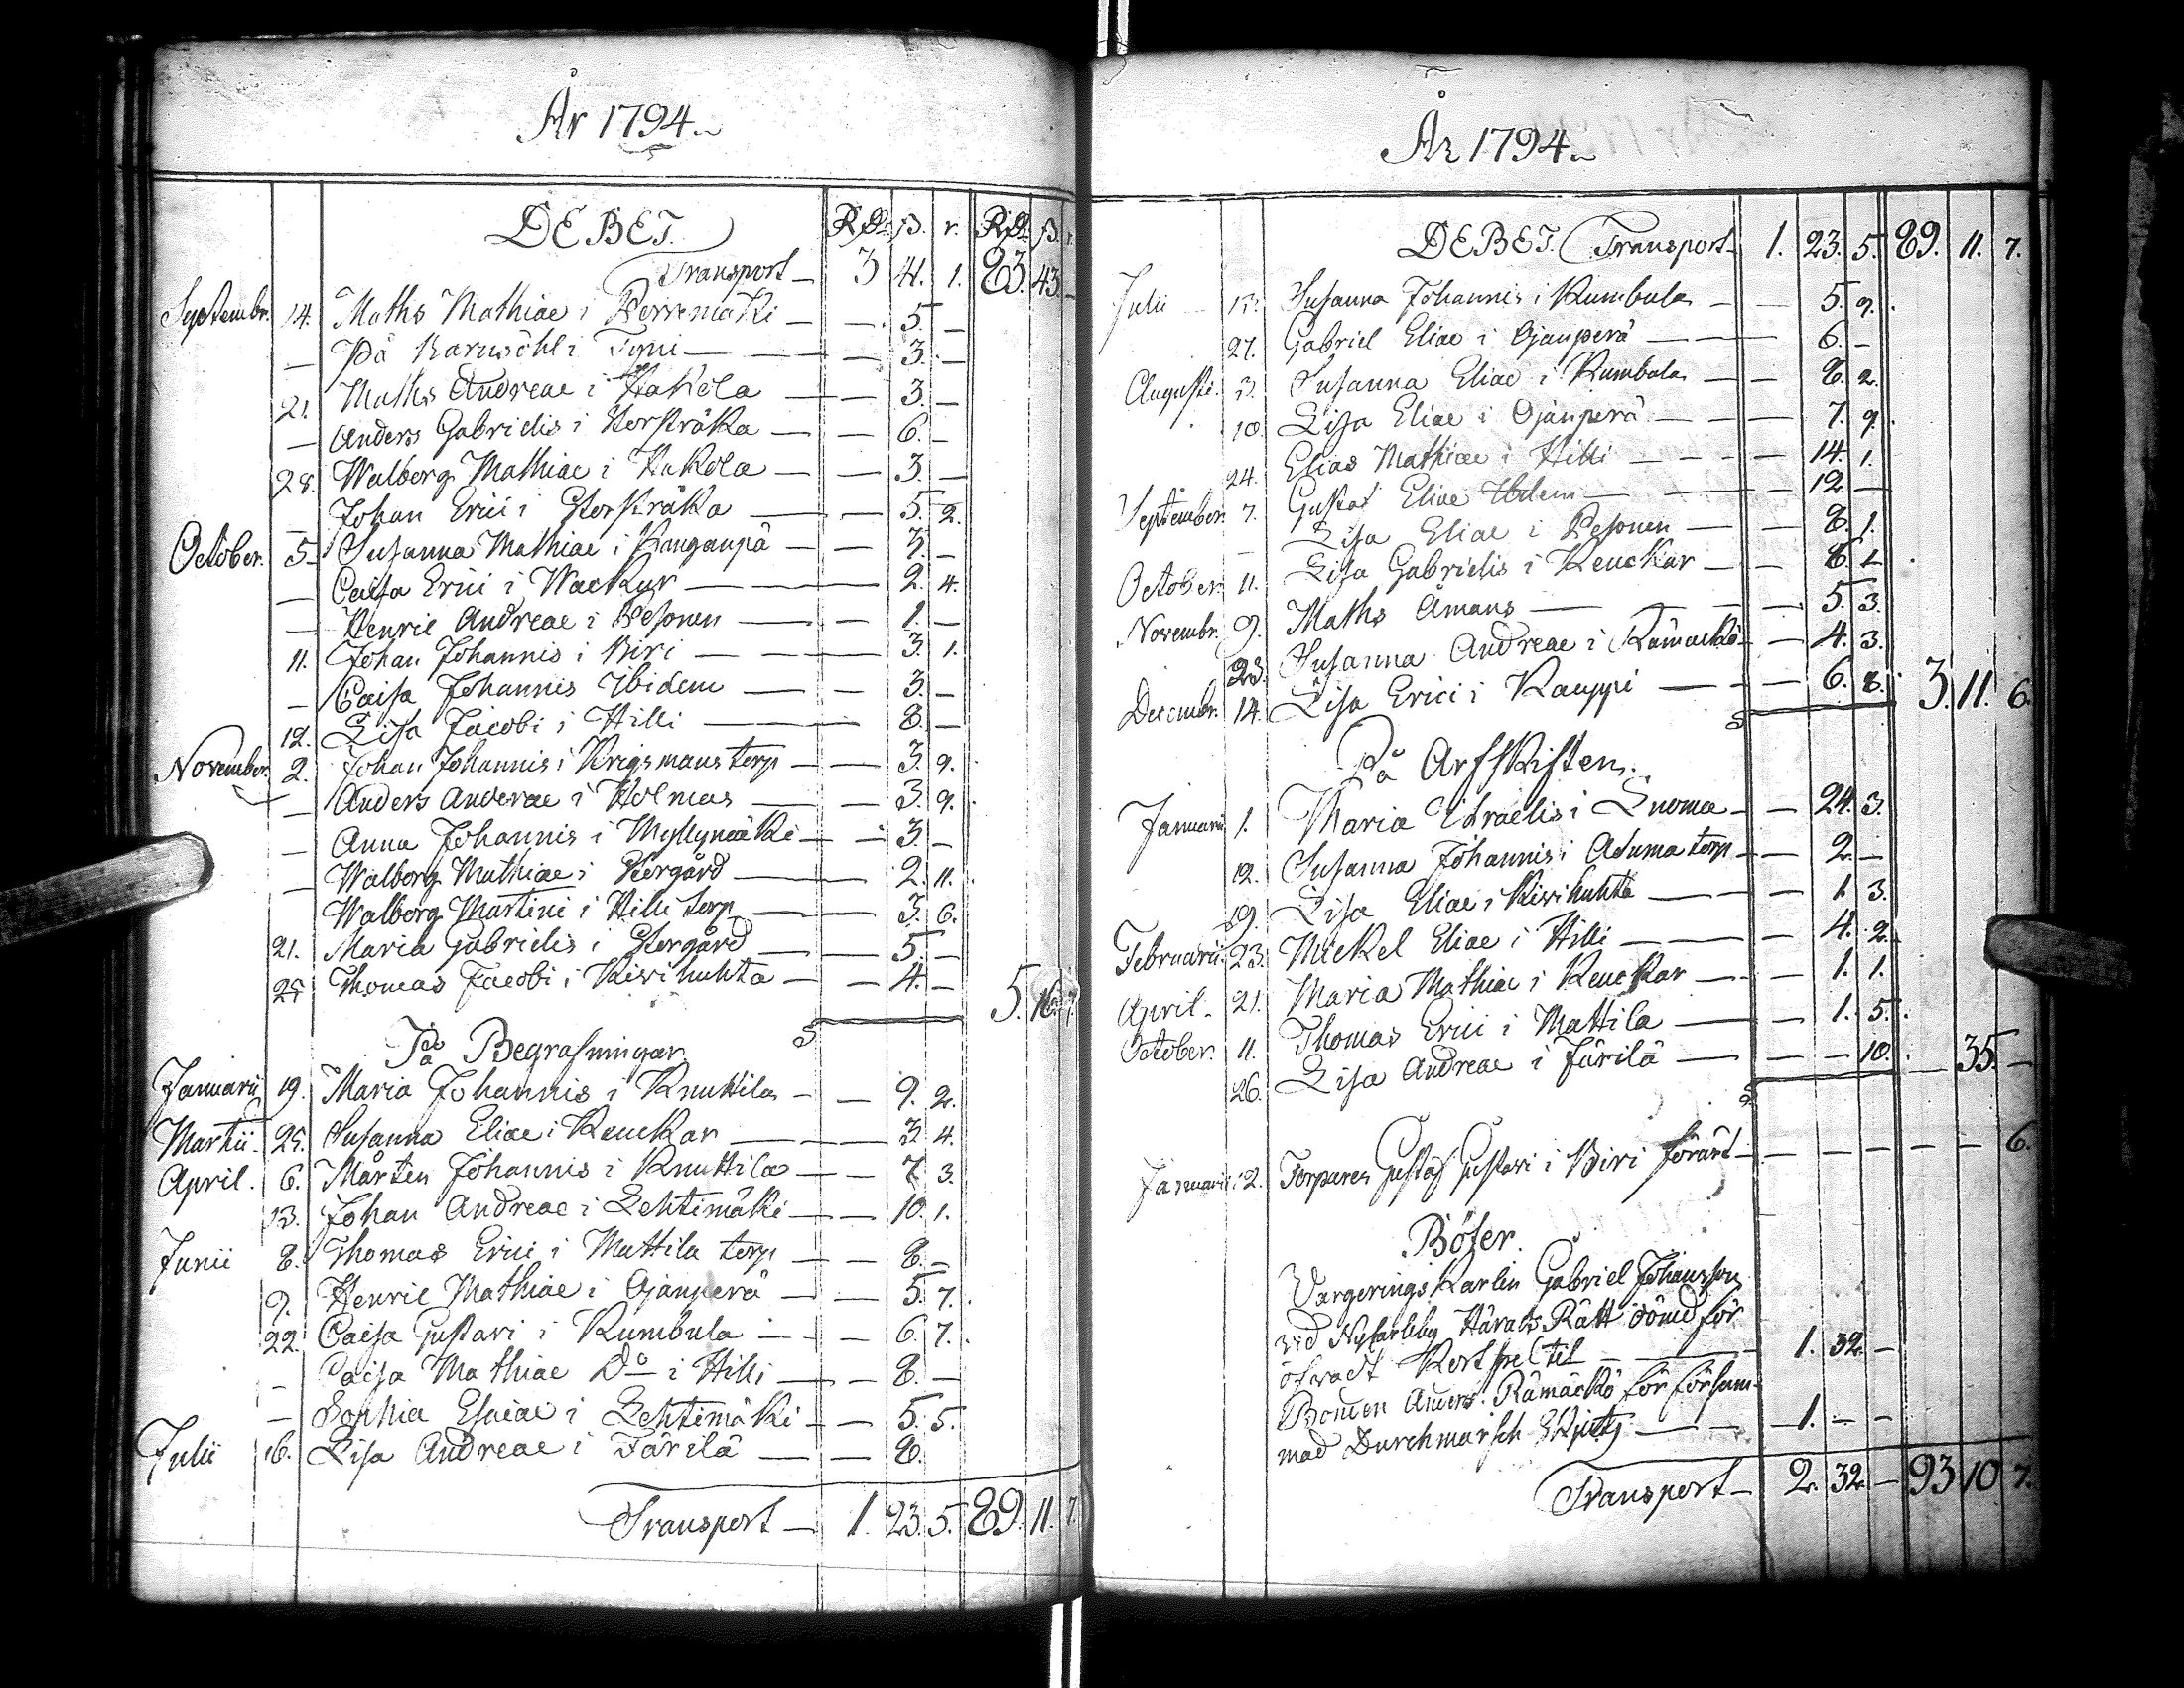 År 1794.
DEBET. Rdr ß. r. Rdr ß. r.
Transport — 3 41. 1. 83. 43. —
Septembr. 14. Maths Mathiae i Perremäki — — 5. —
— På Barnsöhl i Tyni — — 3. —
21. Maths Andreae i Hakola — — 3. —
— Anders Gabrielis i Storstråka — — 6. —
28. Walborg Mathiae i Hakola — — 3. —
— Johan Erici i Storkråka — — 5. 2.
October. 5. Susanna Mathiae i Kangaspä — — 3. —
— Caisa Erici i Wackur — — 2. 4.
— Henric Andreae i Pesonen — — 1. —
11. Johan Johannis i Biri — — 3. 1.
— Caisa Johannis Ibidem — — 3. —
12. Lisa Jacobi i Hilli — — 8. —
November. 2. Johan Johannis i Krigsmans torp — — 3. 9.
— Anders Anderae i Holmas — — 3. 9.
— Anna Johannis i Myllymäki — — 3. —
— Walborg Mathiae i Stergård — — 2. 11.
Walborg Martini i Hilli torp — — 3. 6.
21. Maria Gabrielis i Stergård — — 5. —
25. Thomas Jacobi i Kivihuhta — — 4. — 5. 16. 7.
På Begrafningar.
Januarii 19. Maria Johannis i Knuttila — — 9. 2.
Martii. 25. Susanna Eliae i Keuckar — — 3 4.
April. 6. Mårten Johannis i Knuttila — — 7 3.
13. Johan Andreae i Lehtimäki — — 10. 1.
Junii 8. Thomas Erici i Mattila torp — — 8. —
9. Henric Mathiae i Ojanperä — — 5. 7.
22. Caisa Gustavi i Kumbula — — 6. 7.
— Caisa Mathiae Do i Hilli — — 8. —
— Sophia Esaiae i Lehtimäki — — 5. 5.
Julii 6. Lisa Andreae i Järilä — — 8.
Transport — 1. 23. 5. 89. 11. 7.
År 1794.
DEBET. Transport — 1. 23. 5. 89. 11. 7.
Julii 13. Susanna Johannis i Kumbula — — 5. 9.
27. Gabriel Eliae i Ojanperä — — 6. —
Augusti. 3. Susanna Eliae i Kumbula — — 8. 2.
10. Lisa Eliae i Ojanperä — — 7. 9.
24. Elias Mathiae i Hilli — — 14. 1.
September. 7. Gustaf Eliae Ibdem — — 12. —
— Lisa Eliae i Pesonen — — 8. 1.
October. 11. Lisa Gabrielis i Keuckar — — 8. 1
Novembr. 9. Maths Åmans — — 5. 3.
23. Susanna Andreae i Rämäckö — — 4. 3.
Decembr. 14. Lisa Erici i Kauppi — — 6. 8. 3. 11. 6.
På Arfskisten.
Januarii 1. Maria Israelis i Luoma — — 24. 3.
12. Susanna Johannis i Asuma torp — — 2. —
19. Lisa Eliae i Kivihuhta — — 1 3.
Februarii. 23. Mickel Eliae i Hilli — — 4. 2.
April. 21. Maria Mathiae i Keuckar — — 1. 1.
October. 11. Thomas Erici i Mattila — — 1. 5.
26. Lisa Andreae i Järilä — — — 10. — 35. —
Januarii 2. Torparen Gustaf Gustavi i Biri förärt — — — — — — 6.
Böter.
Vargerings Karlen Gabriel Johansson
vid Nykarleby Härads Rätt dömd för
öfvadt Kortspel til — 1. 32. —
Bonden Anders Rämäckö för försum-
mad Durchmarsch Skjuts — 1. — —
Transport — 2. 32. — 93 10 7.